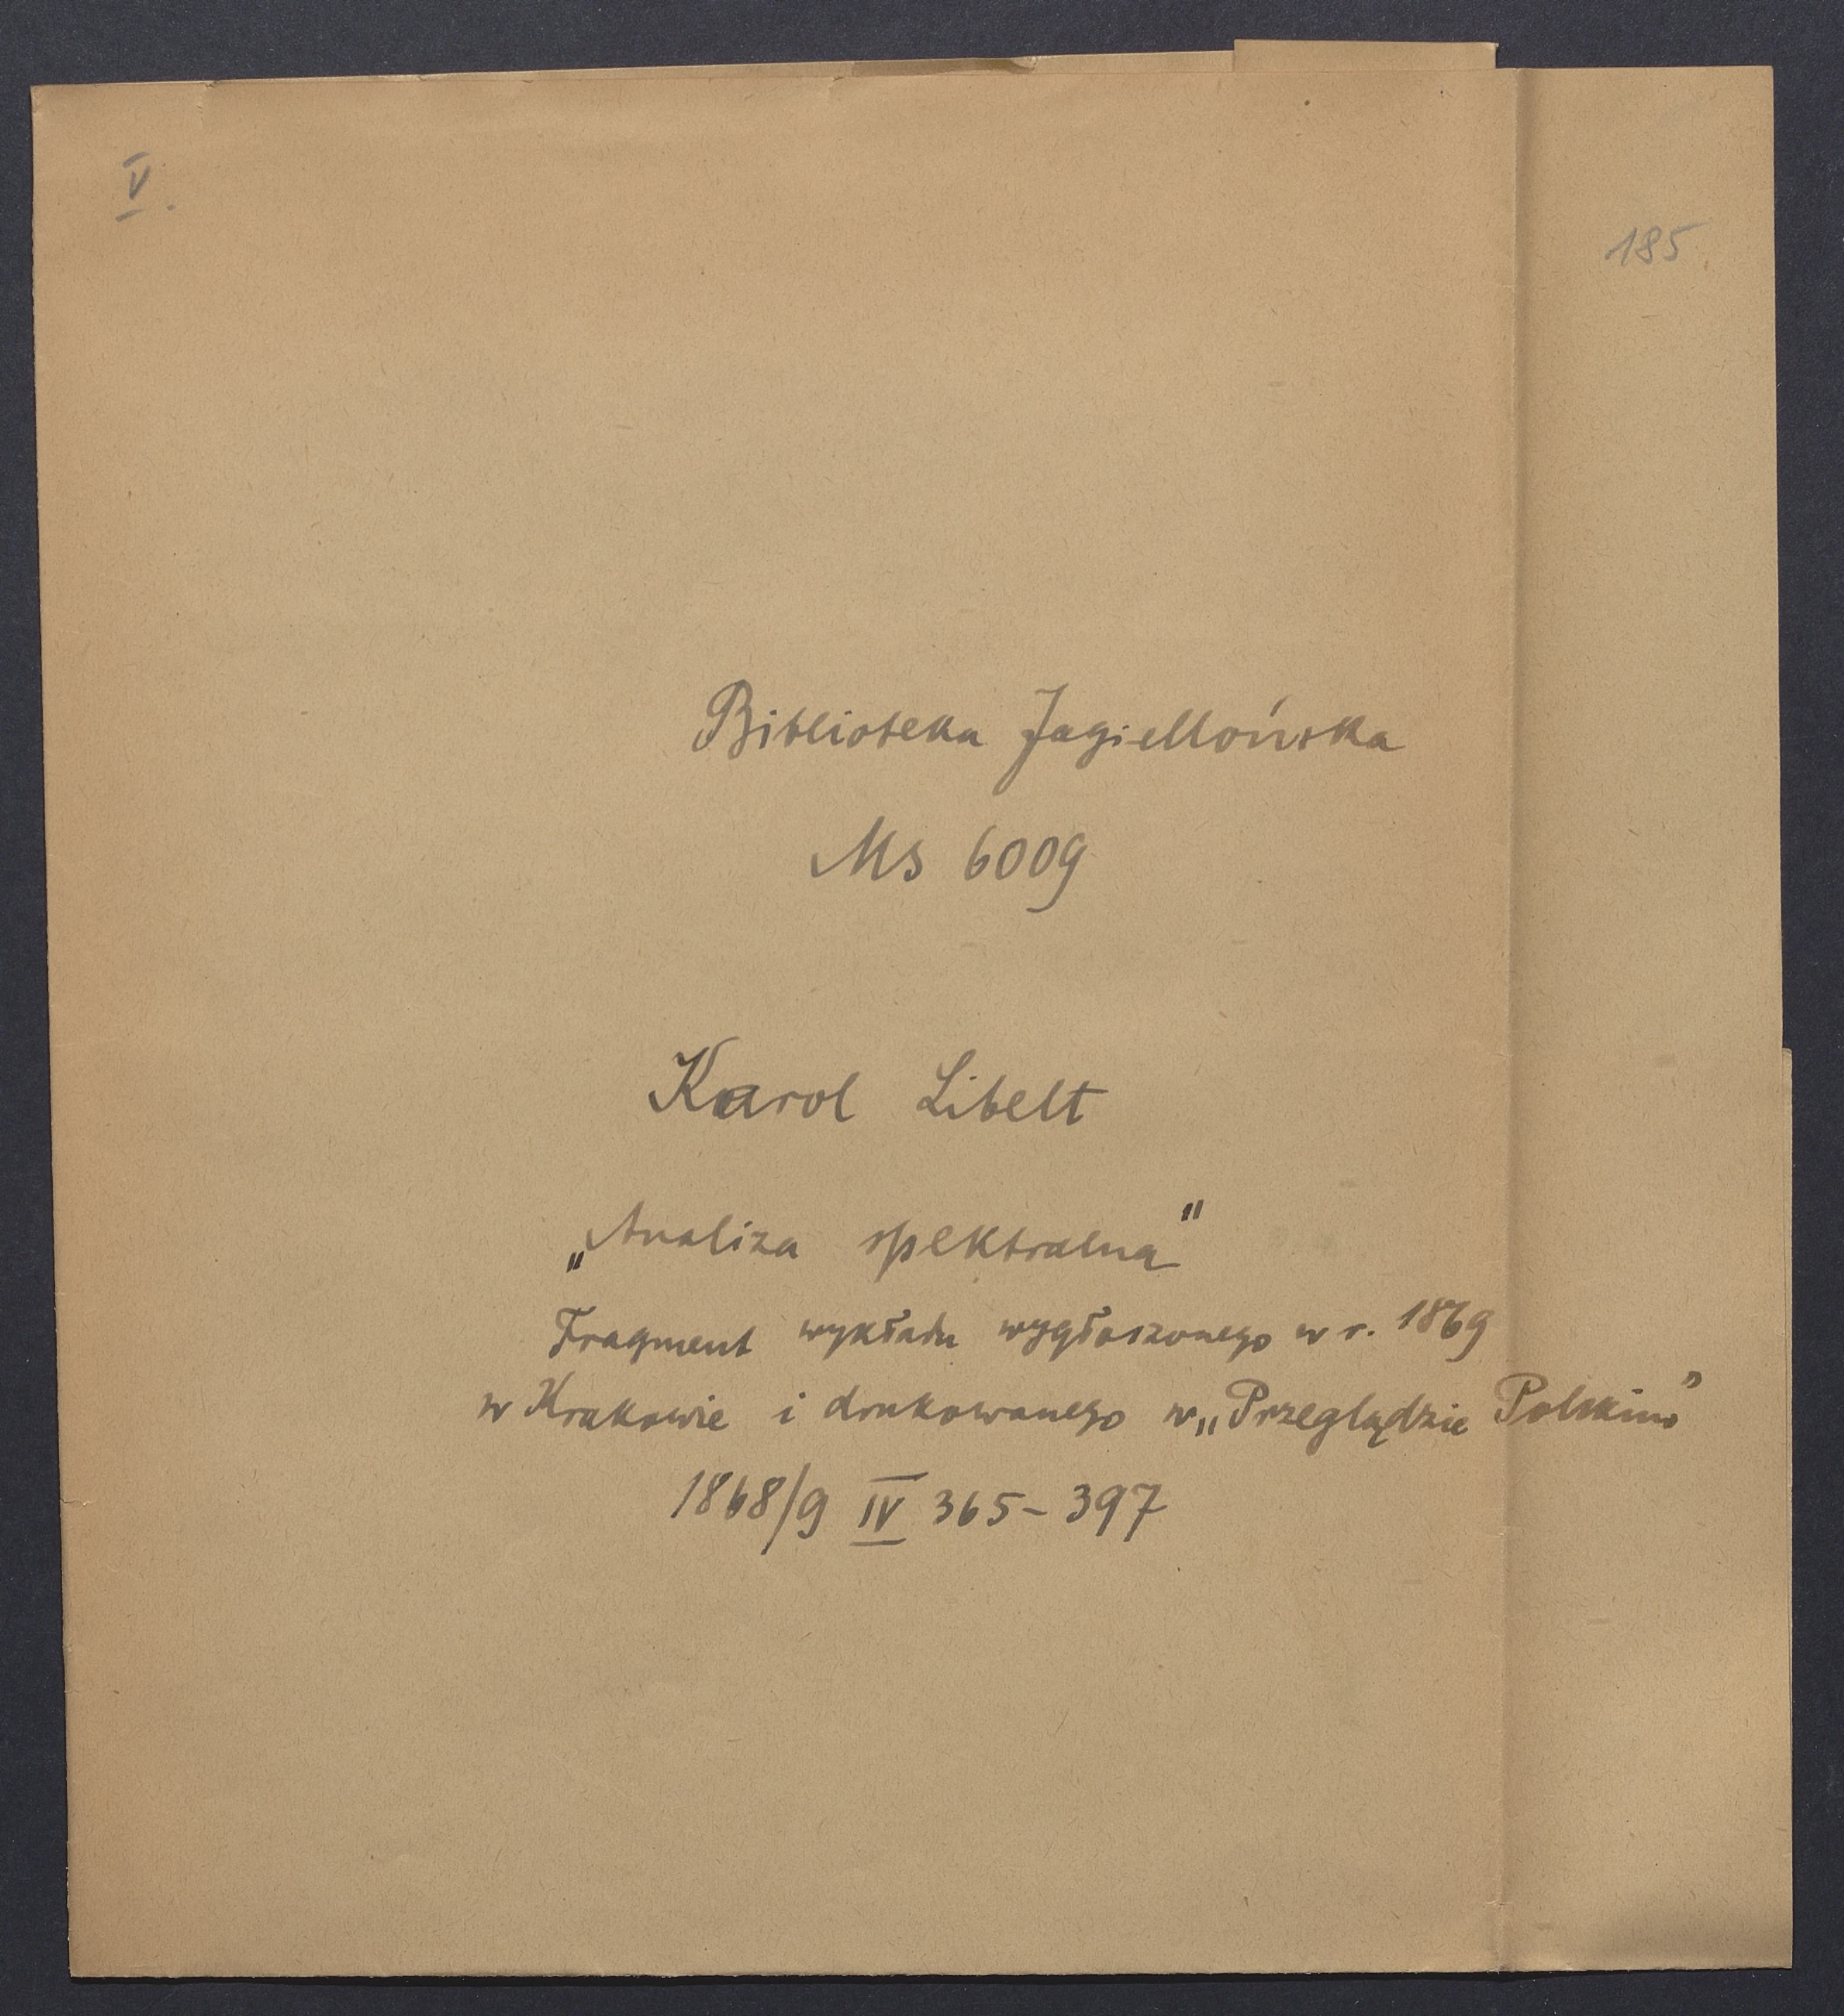 V.
185
Biblioteka Jagiellońska
Ms 6009
Karol Libelt
„Analiza spektralna"
Fragment wykładu wygłoszonego w r. 1869
w Krakowie i drukowanego w „Przeglądzie Polskim"
1868/9 IV 365-397